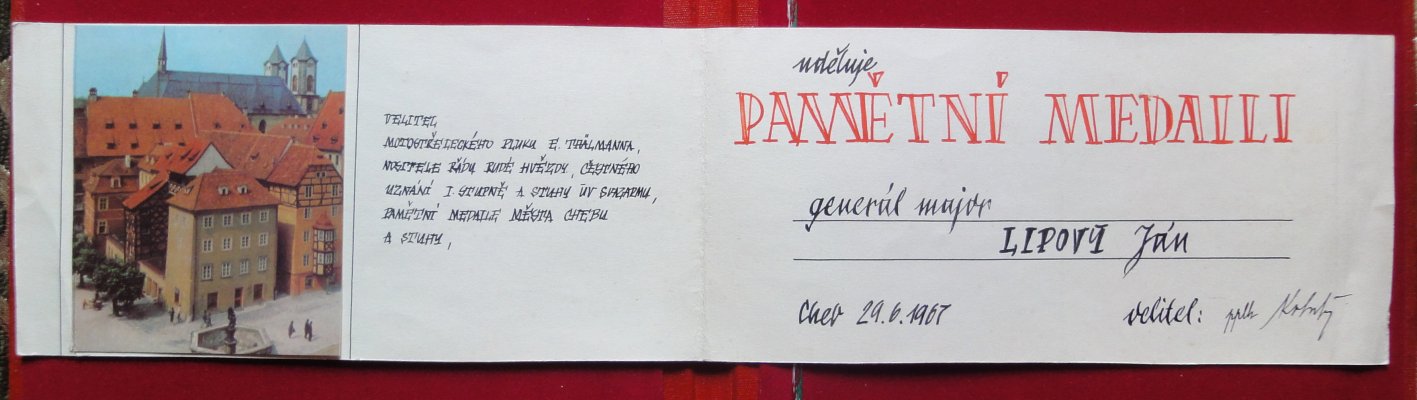 VELITEL
MOTOSTŘELECKÉHO PLUKU E. THÄLMANNA,
NOSITELE ŘÁDU RUDÉ HVĚZDY, ČESTNÉHO
UZNÁNÍ I. STUPNĚ A STUHY ÚV SVAZARMU,
PAMĚTNÍ MEDAILE MĚSTA CHEBU
A STUHY,
uděluje
PAMĚTNÍ MEDAILI
generál major
LIPOVÝ Ján
Cheb 29.6.1967
velitel: pplk